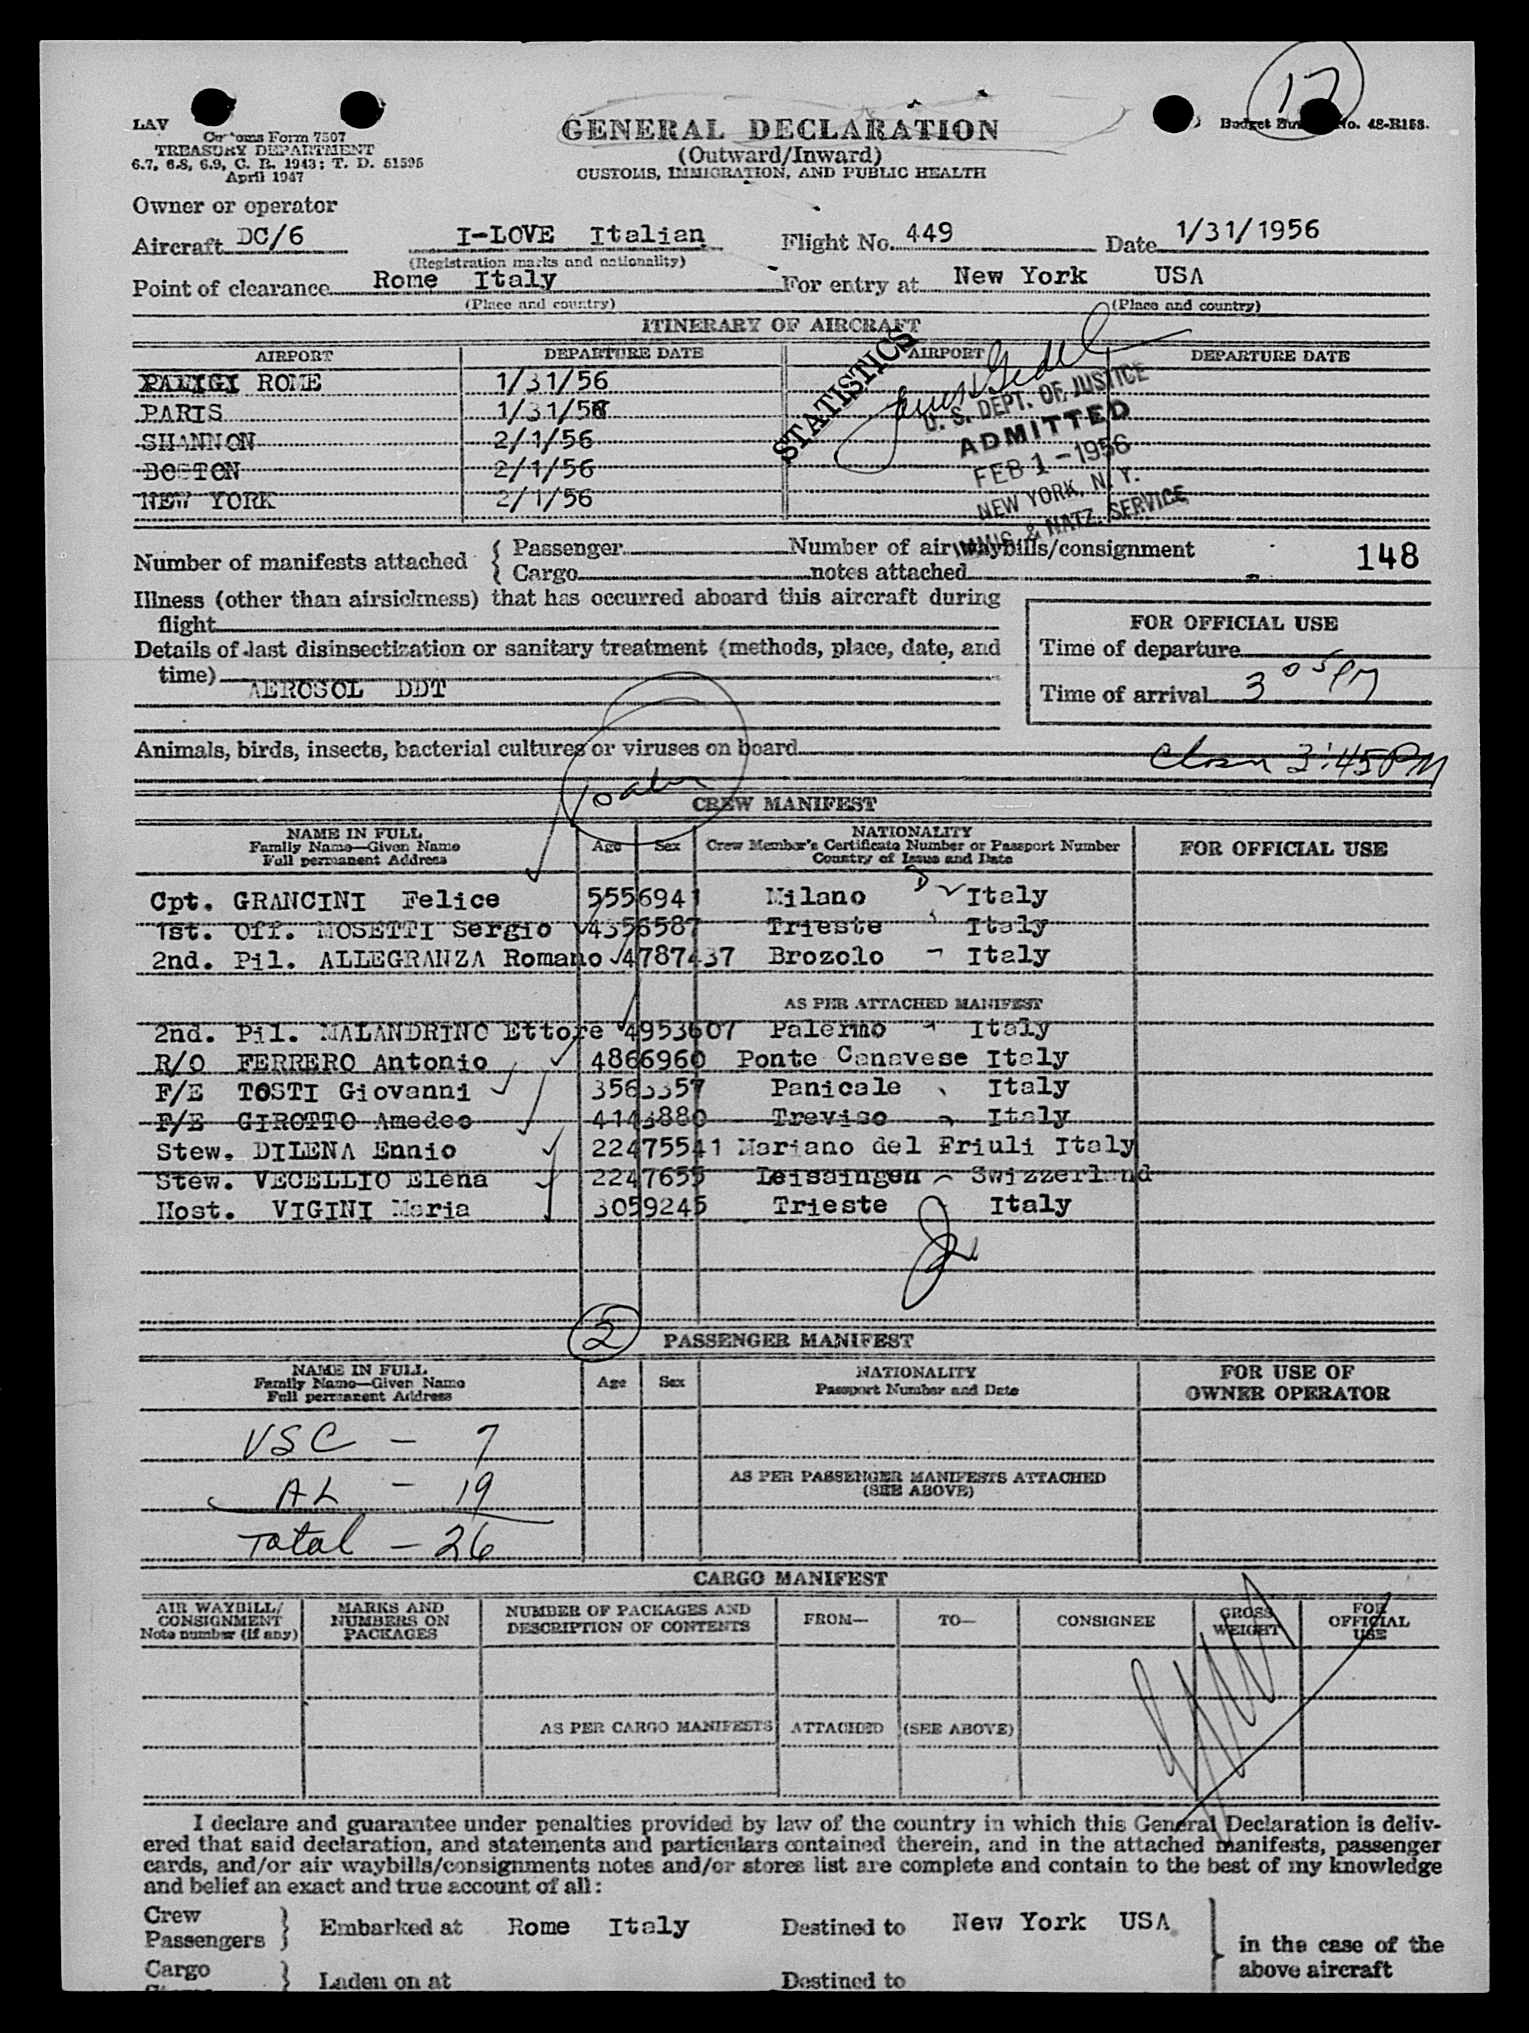 17
LAV
Customs Form 7507
TREASURY DEPARTMENT
6.7, 6.8, 6.9, C. R. 1943; T. D. 51595
April 1947
GENERAL DECLARATION
(Outward/Inward)
CUSTOMS, IMMIGRATION, AND PUBLIC HEALTH
Budget No. 48-R153.
Owner or operator
Aircraft DC/6 I-LOVE Italian Flight No. 449 Date 1/31/1956
(Registration marks and nationality)
Point of clearance Rome Italy For entry at New York USA
(Place and country) (Place and country)
ITINERARY OF AIRCRAFT
AIRPORT DEPARTURE DATE AIRPORT DEPARTURE DATE
ROME 1/31/56
PARIS 1/31/56
SHANNON 2/1/56
BOSTON 2/1/56
NEW YORK 2/1/56
STATISTICS
U. S. DEPT. OF JUSTICE
ADMITTED
FEB 1 - 1956
NEW YORK, N. Y.
IMMIG. & NATZ. SERVICE
Number of manifests attached { Passenger Number of air waybills/consignment 148
{ Cargo notes attached
Illness (other than airsickness) that has occurred aboard this aircraft during
flight
Details of last disinsectization or sanitary treatment (methods, place, date, and
time)
AEROSOL DDT
FOR OFFICIAL USE
Time of departure
Time of arrival 3 05 PM
Animals, birds, insects, bacterial cultures or viruses on board
3:45 PM
CREW MANIFEST
NAME IN FULL
Family Name—Given Name
Full permanent Address
Age Sex
NATIONALITY
Crew Member's Certificate Number or Passport Number
Country of Issue and Date
FOR OFFICIAL USE
Cpt. GRANCINI Felice 5556941 Milano Italy
1st. Off. MOSETTI Sergio 4356587 Trieste Italy
2nd. Pil. ALLEGRANZA Romano 4787437 Brozolo Italy
AS PER ATTACHED MANIFEST
2nd. Pil. MALANDRINO Ettore 4953607 Palermo Italy
R/O FERRERO Antonio 4866960 Ponte Canavese Italy
F/E TOSTI Giovanni 3563357 Panicale Italy
F/E GIROTTO Amedeo 4143880 Treviso Italy
Stew. DILENA Ennio 22475541 Mariano del Friuli Italy
Stew. VECELLIO Elena 2247655 Leissingen Swizzerland
Host. VIGINI Maria 3059245 Trieste Italy
2
PASSENGER MANIFEST
NAME IN FULL
Family Name—Given Name
Full permanent Address
Age Sex
NATIONALITY
Passport Number and Date
FOR USE OF
OWNER OPERATOR
VSC - 7
AL - 19
Total - 26
AS PER PASSENGER MANIFESTS ATTACHED
(SEE ABOVE)
CARGO MANIFEST
AIR WAYBILL/
CONSIGNMENT
Note number (if any)
MARKS AND
NUMBERS ON
PACKAGES
NUMBER OF PACKAGES AND
DESCRIPTION OF CONTENTS
FROM—
TO—
CONSIGNEE
GROSS
WEIGHT
FOR
OFFICIAL
USE
AS PER CARGO MANIFESTS ATTACHED (SEE ABOVE)
I declare and guarantee under penalties provided by law of the country in which this General Declaration is deliv-
ered that said declaration, and statements and particulars contained therein, and in the attached manifests, passenger
cards, and/or air waybills/consignments notes and/or stores list are complete and contain to the best of my knowledge
and belief an exact and true account of all:
Crew
Passengers } Embarked at Rome Italy Destined to New York USA
in the case of the
above aircraft
Cargo
Laden on at Destined to